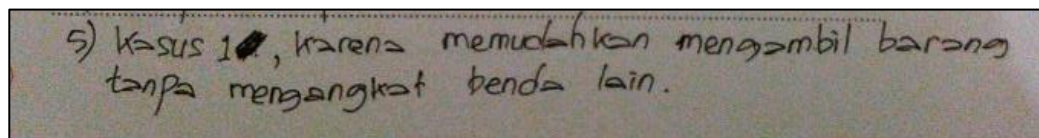 5) Kasus 1, karena memudahkan mengambil barang
tanpa mengangkat benda lain.